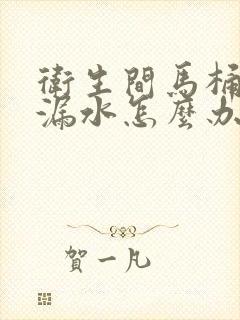 衛生間馬桶
漏水怎麼办
賀一凡